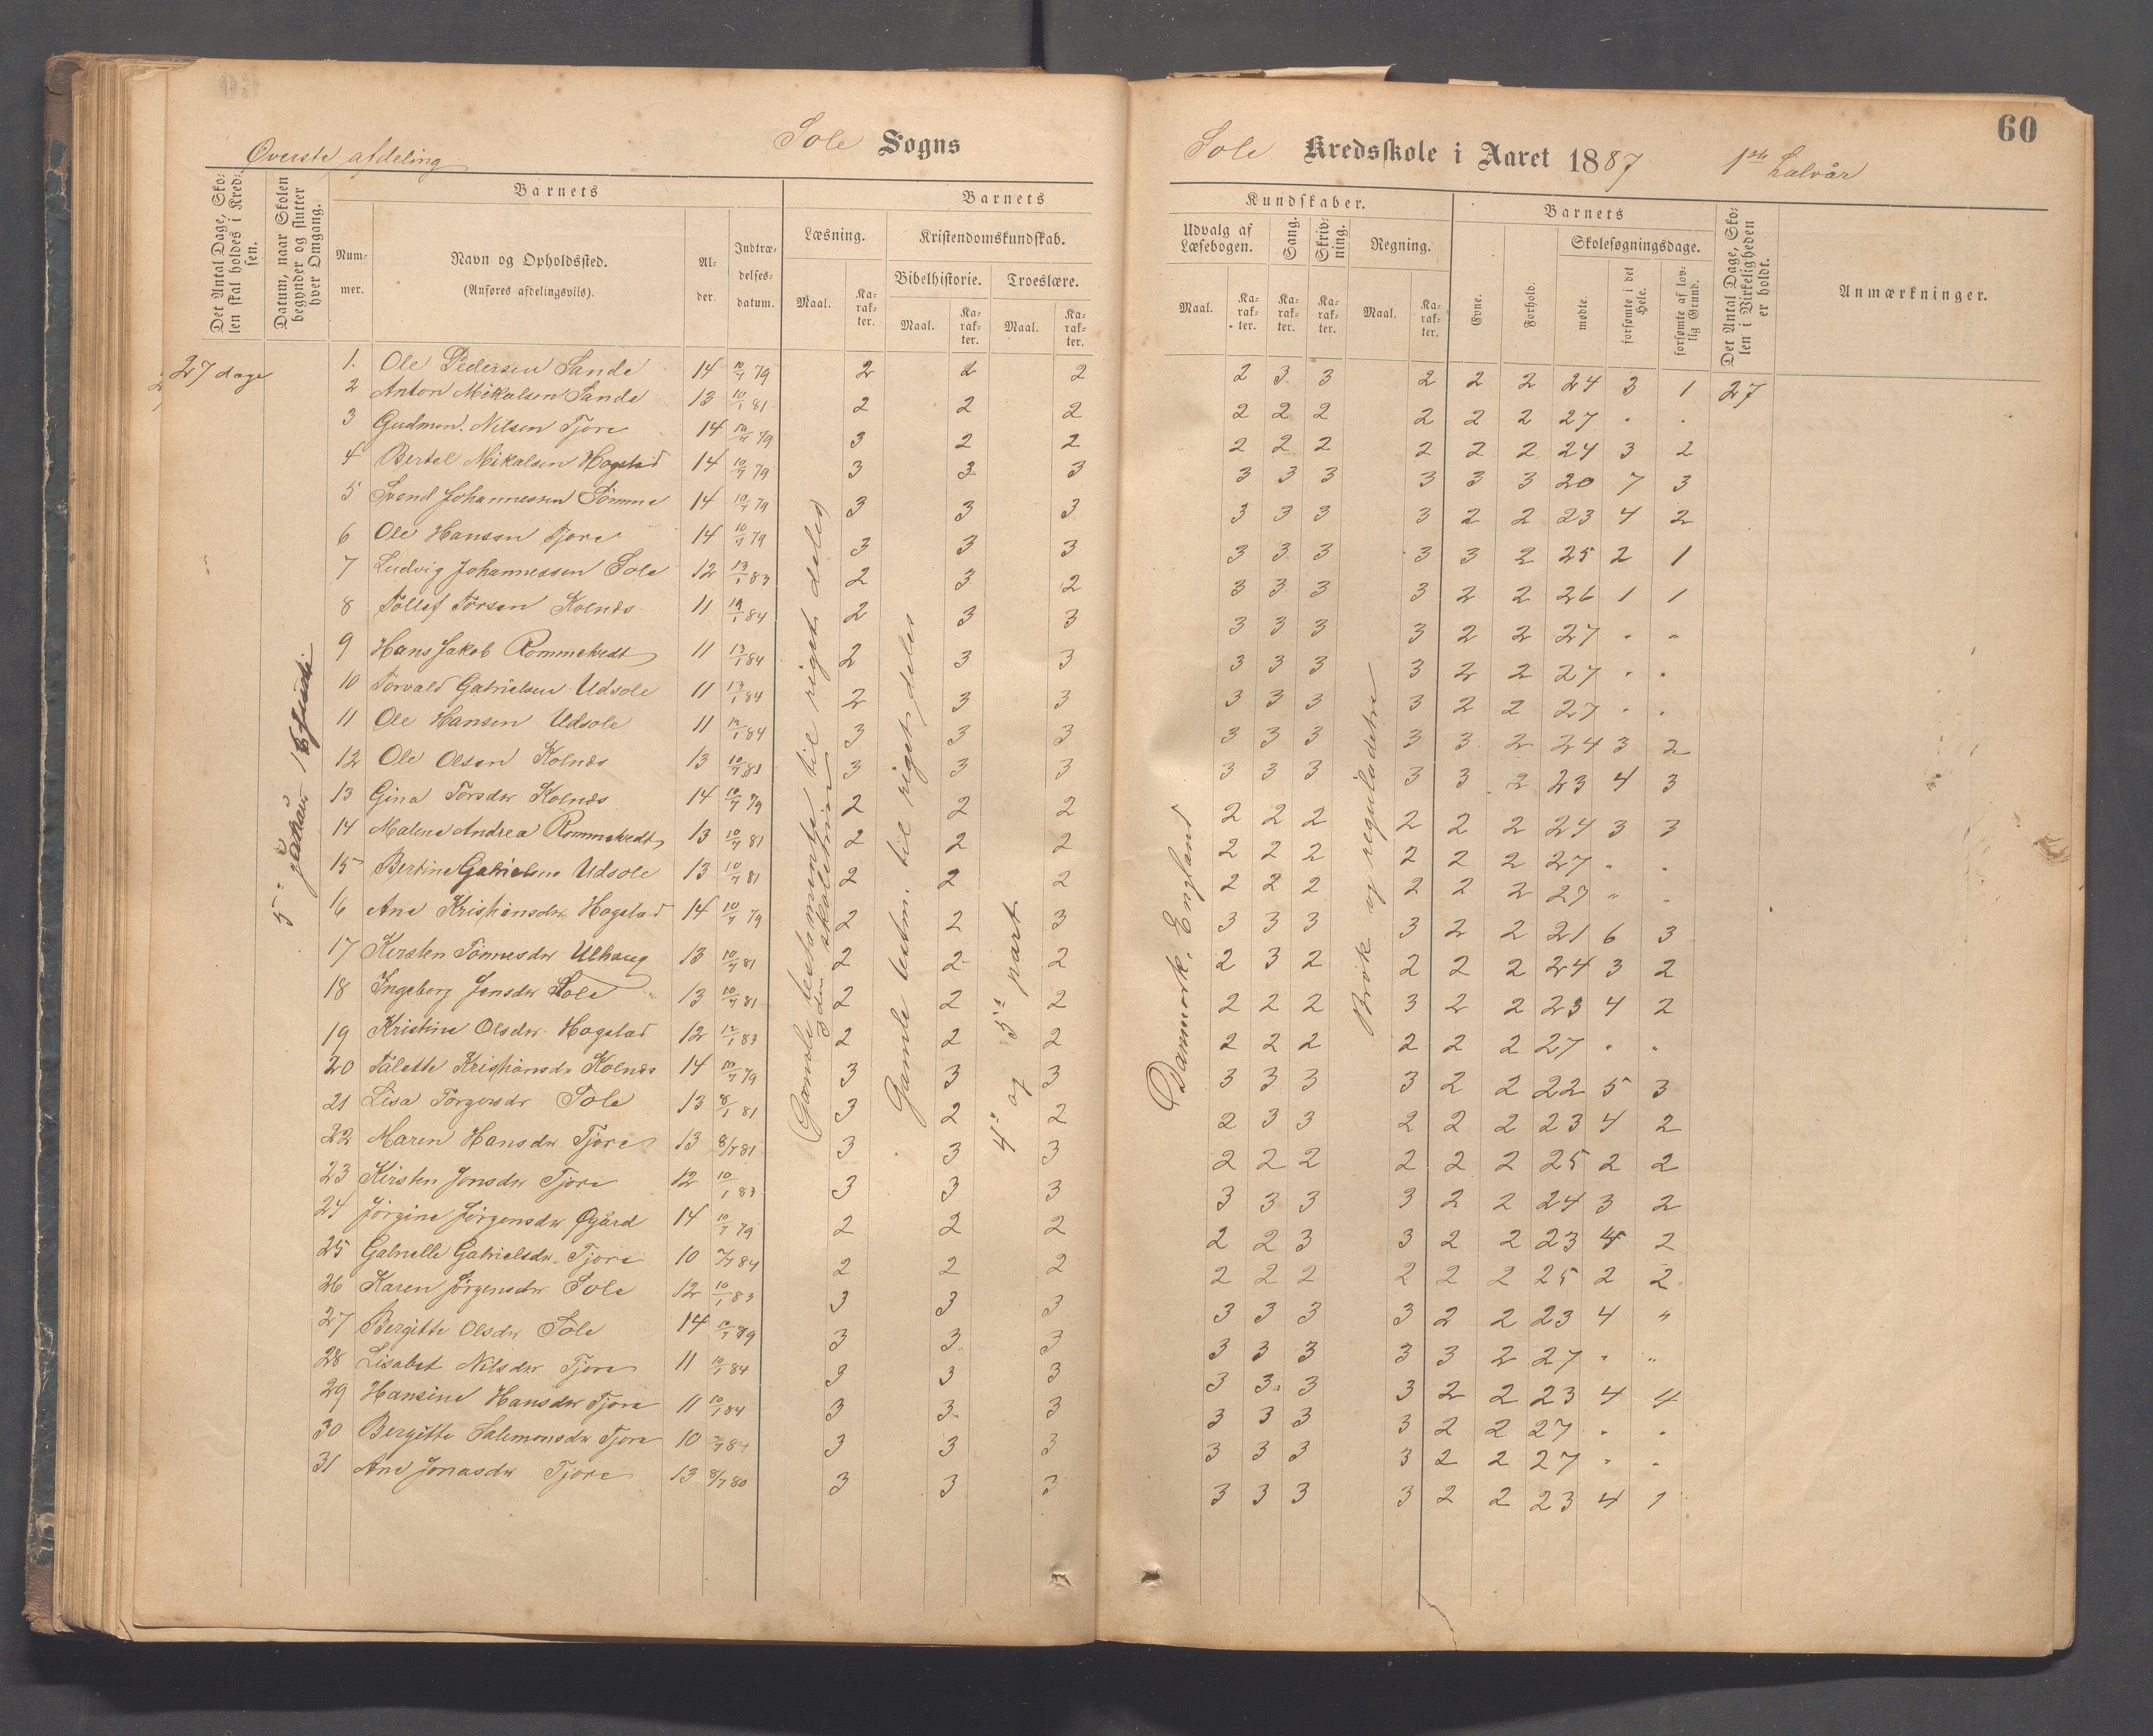 60
Sole Sogns
Sole Kredsskole i Aaret 1887 1ste halvår
Øverste afdeling
Det Antal Dage, Skolen skal holdes i Kredsen.
Datum, naar Skolen begynder og slutter hver Omgang.
Barnets
Nummer.
Navn og Opholdssted.
(Anføres afdelingsviis).
Alder.
Indtrædelsesdatum.
Barnets
Læsning.
Maal.
Karakter.
Kristendomskundskab.
Bibelhistorie.
Maal.
Karakter.
Troeslære.
Maal.
Karakter.
Kundskaber.
Udvalg af Læsebogen.
Maal.
Karakter.
Sang.
Karakter.
Skrivning.
Karakter.
Regning.
Maal.
Karakter.
Barnets
Evne.
Forhold.
Skolesøgningsdage.
mødte.
forsømte i det Hele.
forsømte af lovlig Grund.
Det Antal Dage, Skolen i Virkeligheden er holdt.
Anmærkninger.
27 dage
Gamle testm. til riget deles
4: og 5: part
Danmark, England
Brøk og reguladetri
1. Ole Pedersen Sande 14 10/7 79 2 2 2 2 3 3 2 2 2 24 3 1 27
2 Anton Mikalsen Sande 13 10/1 81 2 2 2 2 2 2 2 2 2 27 " "
3 Gudmon. Nilsen Tjore 14 10/7 79 3 2 2 2 2 2 2 2 2 24 3 2
4 Bertel Mikalsen Hogstad 14 10/7 79 3 3 3 3 3 3 3 3 3 20 7 3
5 Svend Johannessen Sömme 14 10/7 79 3 3 3 3 3 3 3 2 2 23 4 2
6 Ole Hansen Tjore 14 10/7 79 3 3 3 3 3 3 3 3 2 25 2 1
7 Ludvig Johannessen Sole 12 13/1 83 2 3 2 3 3 3 3 2 2 26 1 1
8 Tollef Torsen Kolnes 11 19/1 84 2 3 3 3 3 3 3 2 2 27 " "
9 Hans Jakob Rommetvedt 11 13/1 84 2 3 3 3 3 3 3 2 2 27 " "
10 Torvald Gabrielsen Udsole 11 13/1 84 2 3 3 3 3 3 3 2 2 27 " "
11 Ole Hansen Udsole 11 12/1 84 3 3 3 3 3 3 3 3 2 24 3 2
12 Ole Olsen Kolnes 13 10/7 81 3 3 3 3 3 3 3 3 2 23 4 3
13 Gina Torsdtr Kolnes 14 10/7 79 2 2 2 2 2 2 2 2 2 24 3 3
14 Malene Andrea Rommetvedt 13 10/7 81 2 2 2 2 2 2 2 2 2 27 " "
15 Bertine Gabrielsne Udsole 13 10/7 81 2 2 2 2 2 2 2 2 2 27 " "
16 Ane Kristiansdtr Hogstad 14 10/7 79 2 2 3 3 3 3 3 2 2 21 6 3
17 Kersten Tönnesdtr Ulhaug 13 10/7 81 2 2 2 2 3 2 2 2 2 24 3 2
18 Ingeborg Jensdtr Sole 13 10/7 81 2 2 2 2 2 2 3 2 2 23 4 2
19 Kristine Olsdtr Hogstad 12 12/1 83 2 2 2 2 2 2 2 2 2 27 " "
20 Tålette Kristiansdtr Kolnes 14 10/7 79 3 3 3 3 3 3 3 2 2 22 5 3
21 Lisa Törgersdr Sole 13 8/1 81 3 2 2 2 3 3 2 2 2 23 4 2
22 Maren Hansdtr Tjore 13 8/7 81 3 3 3 2 2 2 2 2 2 25 2 2
23 Kirsten Jonsdtr Tjore 12 10/1 83 3 3 3 3 3 3 3 2 2 24 3 2
24 Jörgine Jörgensdtr Øgård 14 10/7 79 2 2 2 2 2 3 3 2 2 23 4 2
25 Gabrielle Gabrielsdtr Tjore 10 7/7 84 2 2 2 2 2 2 2 2 2 25 2 2
26 Karen Jörgensdtr Sole 12 10/1 83 3 3 3 3 3 3 3 2 2 23 4 "
27 Bergitte Olsdtr Sole 14 10/7 79 3 3 3 3 3 3 3 3 2 27 " "
28 Lisabet Nilsdtr Tjore 11 10/1 84 3 3 3 3 3 3 3 2 2 23 4 4
29 Hansine Hansdtr Tjore 11 10/1 84 3 3 3 3 3 3 3 2 2 27 " "
30 Bergitte Salemonsdtr Tjore 10 7/7 84 3 3 3 3 3 3 3 2 2 27 " "
31 Ane Jonasdtr Tjore 13 8/7 80 3 3 3 3 3 3 3 2 2 23 4 1